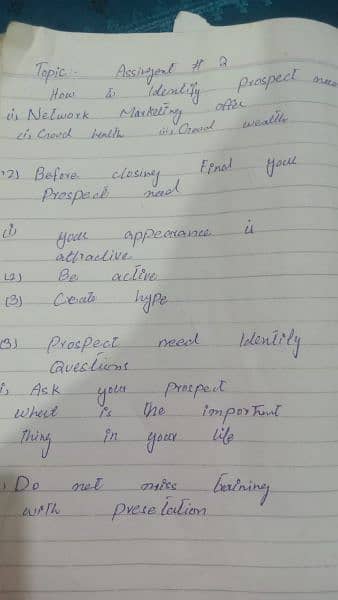 Topic:- Assingent # 2
How to Identify prospect need
(i) Network Marketing offer
(i) Croud health (ii) Croud wealth
(2) Before closing Final your
Prospect need
(1) your appearance is
attractive
(2) Be active
(3) Create hype
(3) Prospect need Identify
Questions
i, Ask your prospect
what is the important
thing in your life
, Do not miss training
with presetation